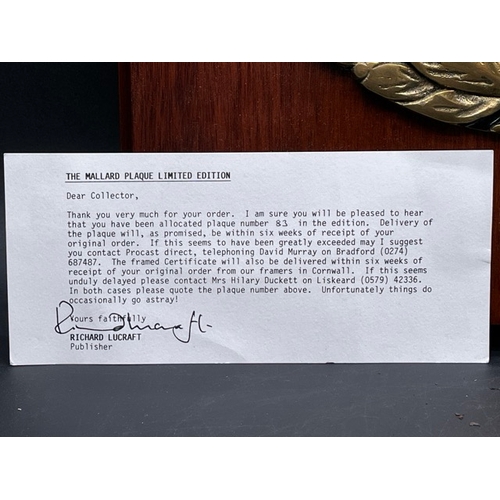 THE MALLARD PLAQUE LIMITED EDITION
Dear Collector,
Thank you very much for your order. I am sure you will be pleased to hear
that you have been allocated plaque number 83 in the edition. Delivery of
the plaque will, as promised, be within six weeks of receipt of your
original order. If this seems to have been greatly exceeded may I suggest
you contact Procast direct, telephoning David Murray on Bradford (0274)
687487. The framed Certificate will also be delivered within six weeks of
receipt of your original order from our framers in Cornwall. If this seems
unduly delayed please contact Mrs Hilary Duckett on Liskeard (0579) 42336.
In both cases please quote the plaque number above. Unfortunately things do
occasionally go astray!
Yours faithfully
RICHARD LUCRAFT
Publisher